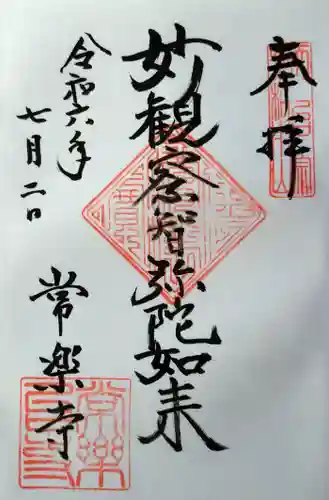 奉拝
妙観察智弥陀如来
令和六年
七月二日
常楽寺